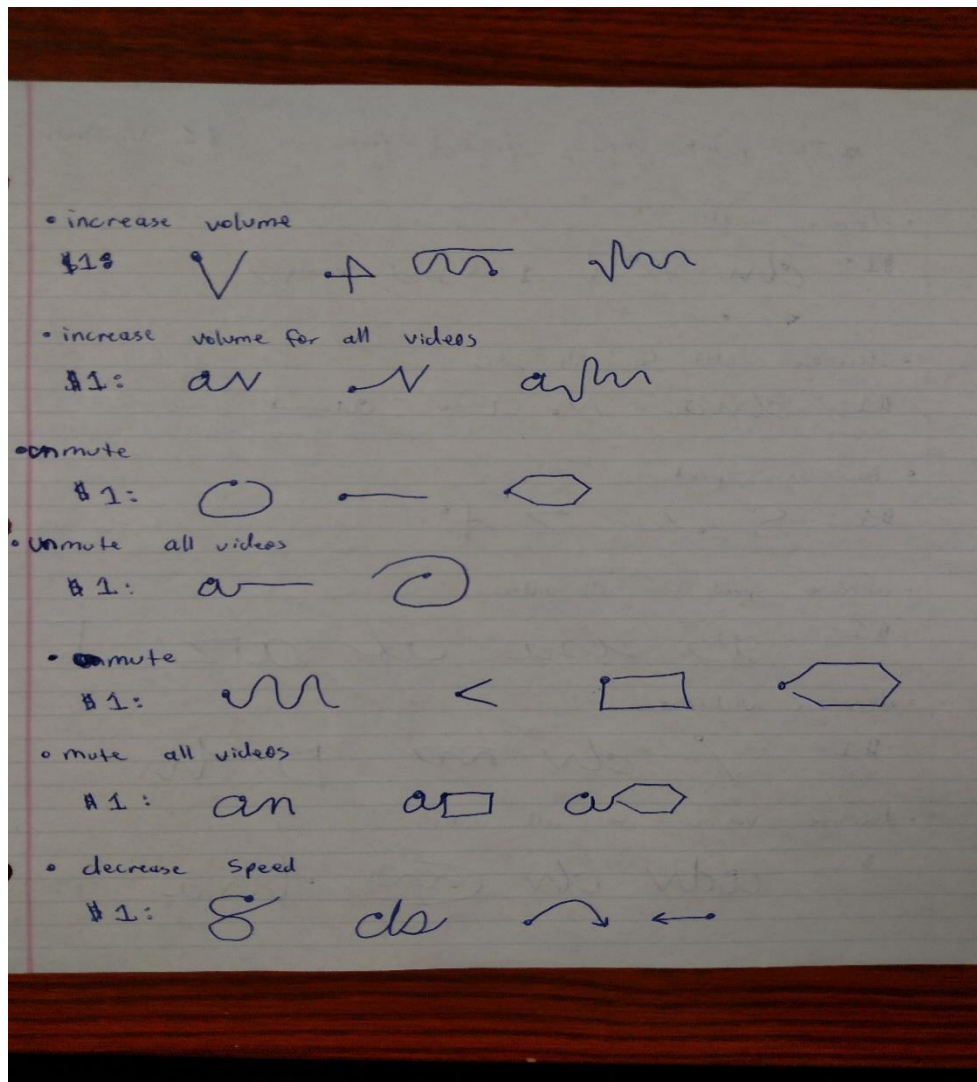 • increase volume
$1:
• increase volume for all videos
$1: av a
• unmute
$1:
• unmute all videos
$1: a
• mute
$1:
• mute all videos
$1: an a a
• decrease speed
$1: 8 ds